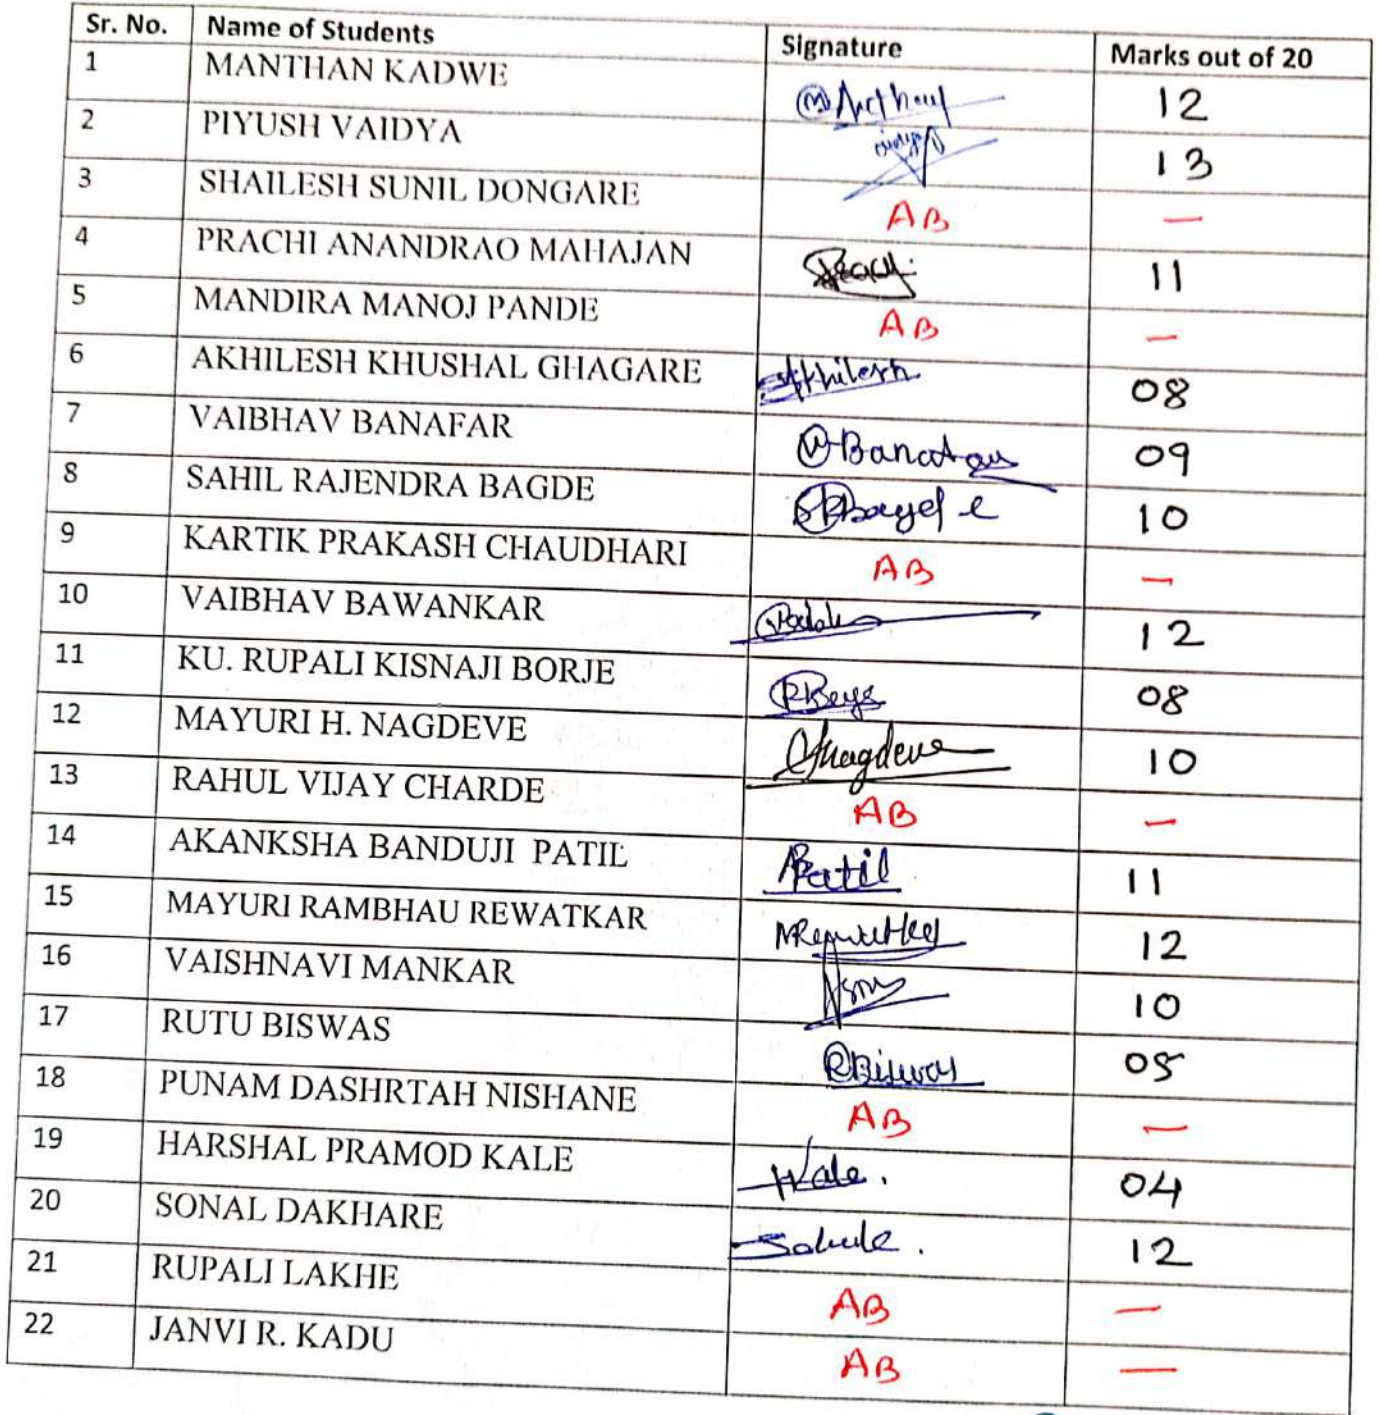 Sr. No. Name of Students Signature Marks out of 20
1 MANTHAN KADWE 12
2 PIYUSH VAIDYA 13
3 SHAILESH SUNIL DONGARE AB —
4 PRACHI ANANDRAO MAHAJAN 11
5 MANDIRA MANOJ PANDE AB —
6 AKHILESH KHUSHAL GHAGARE Akhilesh 08
7 VAIBHAV BANAFAR 09
8 SAHIL RAJENDRA BAGDE 10
9 KARTIK PRAKASH CHAUDHARI AB —
10 VAIBHAV BAWANKAR 12
11 KU. RUPALI KISNAJI BORJE 08
12 MAYURI H. NAGDEVE 10
13 RAHUL VIJAY CHARDE AB —
14 AKANKSHA BANDUJI PATIL APatil 11
15 MAYURI RAMBHAU REWATKAR 12
16 VAISHNAVI MANKAR 10
17 RUTU BISWAS RBiswas 05
18 PUNAM DASHRTAH NISHANE AB —
19 HARSHAL PRAMOD KALE HKale. 04
20 SONAL DAKHARE 12
21 RUPALI LAKHE AB —
22 JANVI R. KADU AB —